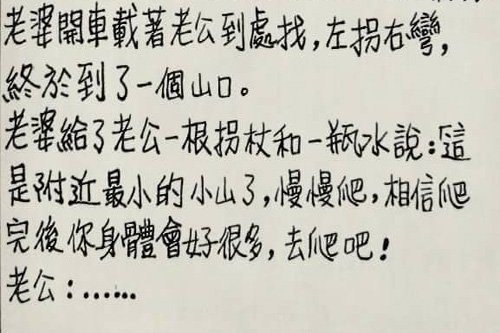 老婆開車載著老公到處找,左拐右彎,
終於到了一個山口。
老婆給了老公一根拐杖和一瓶水說:這
是附近最小的小山了,慢慢爬,相信爬
完後你身體會好很多,去爬吧!
老公:......